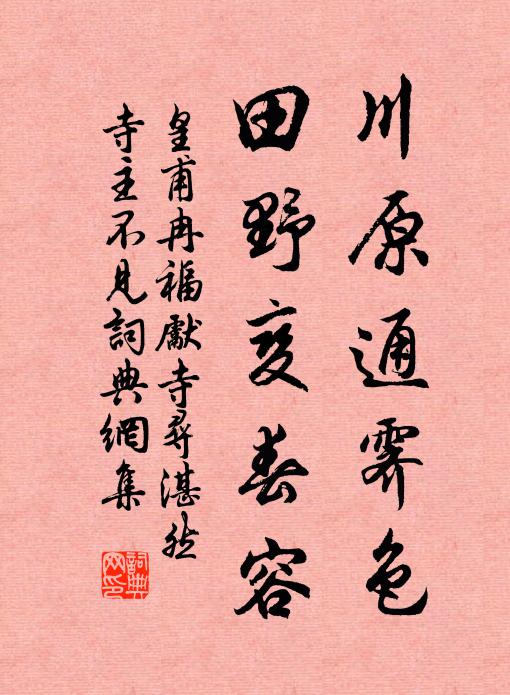 川原通霽色
田野变春容
皇甫冉福獻寺尋湛然
寺主不見詞典網集
詞典
网印